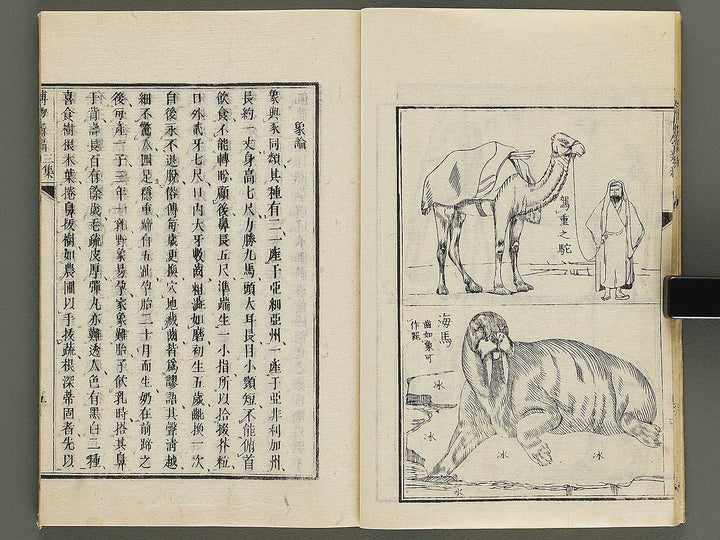 駕重之駝
海馬
齒如象可
作器
冰
冰
冰
冰
水
象論
象與豕同類其種有二一產于亞細亞州一產于亞非利加州
長約一丈身高七尺力勝九馬頭大耳長目小頸短不能俯首
飲食不能轉盼顧後鼻長五尺準端生一小指所以拾掇芥粒
口外貳牙七尺口內大牙數齒粗澁如磨初生五歲亂換一次
自後永不退脫俗傳每歲更換穴地藏齒皆爲謬語其聲淸越
細不驚人四足穩重蹄有五趾孕胎二十月而生奶在前蹄之
後每產一子三年一乳野象易孕家象難胎子飲乳時搭其鼻
于背壽長百有餘歲毛疏皮厚彈丸亦難透入色有黑白二種
喜食樹根木葉捲鼻拔樹如農圃以手拔蔬根深蒂固者先以
博物新編三集
五